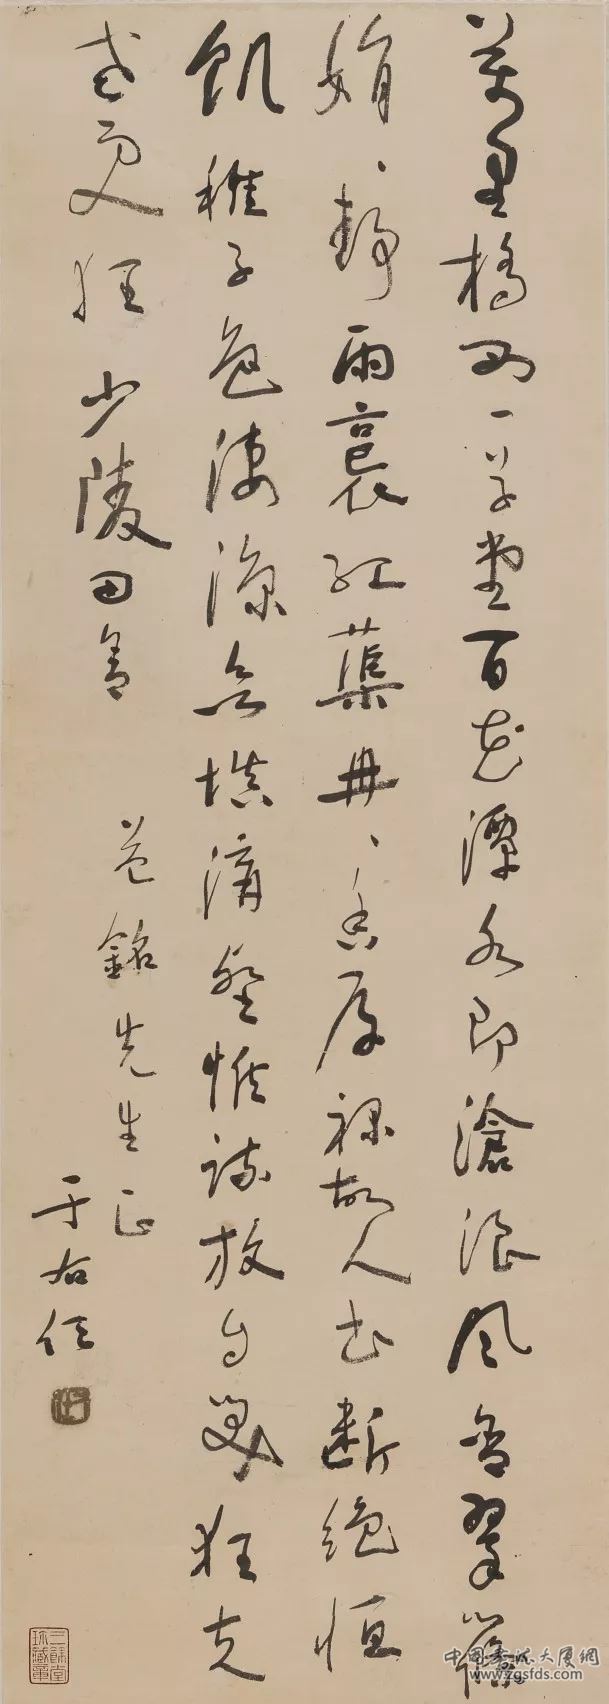 萬里橋西一草堂百花潭水即滄浪風含翠篠
娟〻静雨裛紅蕖冉〻香厚禄故人書斷絕恒
飢稚子色凄涼欲填溝壑惟疏放自笑狂夫
老更狂 少陵田舍
益銘先生正
于右任
中国书法大厦網
www.zgsfds.com